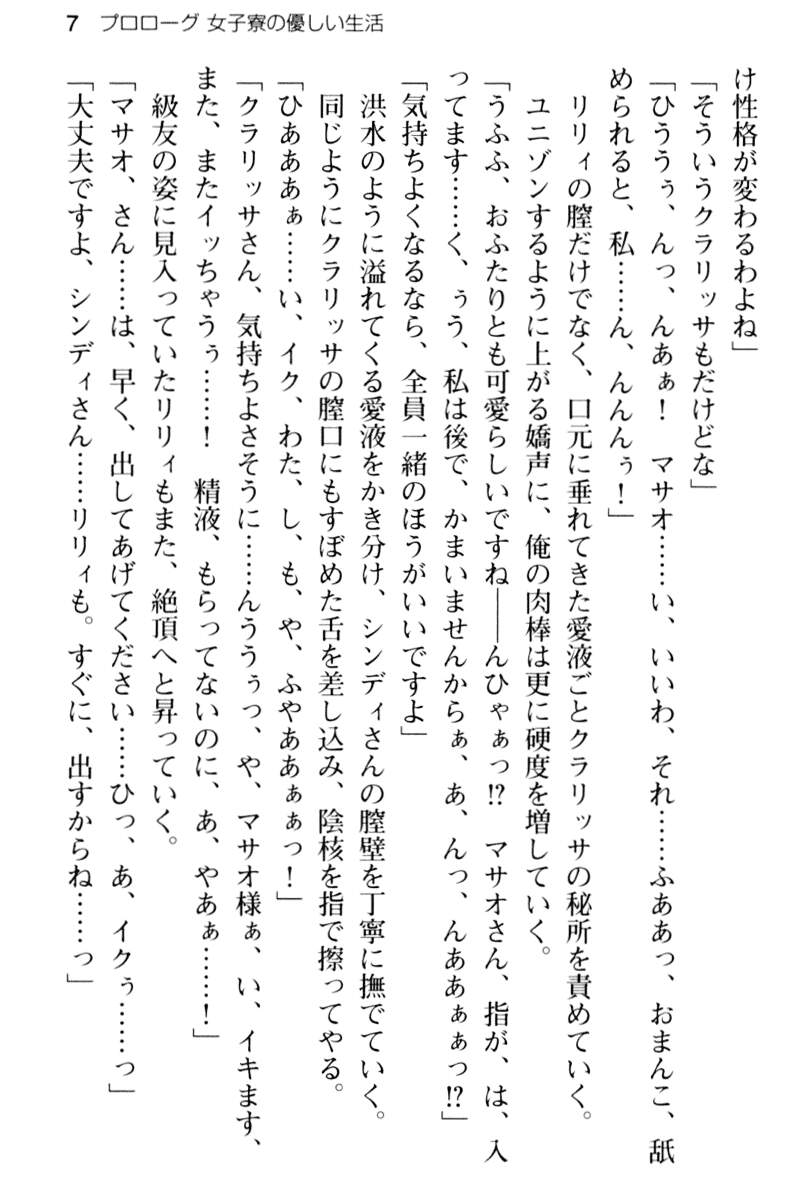 7 プロローグ 女子寮の優しい生活
け性格が変わるわよね」
「そういうクラリッサもだけどな」
「ひううぅ、んっ、んあぁ！　マサオ……い、いいわ、それ……ふああっ、おまんこ、舐
められると、私……ん、んんんぅ！」
リリィの膣だけでなく、口元に垂れてきた愛液ごとクラリッサの秘所を責めていく。
ユニゾンするように上がる嬌声に、俺の肉棒は更に硬度を増していく。
「うふふ、おふたりとも可愛らしいですね――んひゃぁっ!?　マサオさん、指が、は、入
ってます……く、ぅう、私は後で、かまいませんからぁ、あ、んっ、んああぁぁっ!?」
「気持ちよくなるなら、全員一緒のほうがいいですよ」
洪水のように溢れてくる愛液をかき分け、シンディさんの膣壁を丁寧に撫でていく。
同じようにクラリッサの膣口にもすぼめた舌を差し込み、陰核を指で擦ってやる。
「ひあああぁ……い、イク、わた、し、も、や、ふやああぁぁっ！」
「クラリッサさん、気持ちよさそうに……んううぅっ、や、マサオ様ぁ、い、イキます、
また、またイッちゃうぅ……！　精液、もらってないのに、あ、やあぁ……！」
級友の姿に見入っていたリリィもまた、絶頂へと昇っていく。
「マサオ、さん……は、早く、出してあげてください……ひっ、あ、イクぅ……っ」
「大丈夫ですよ、シンディさん……リリィも。すぐに、出すからね……っ」